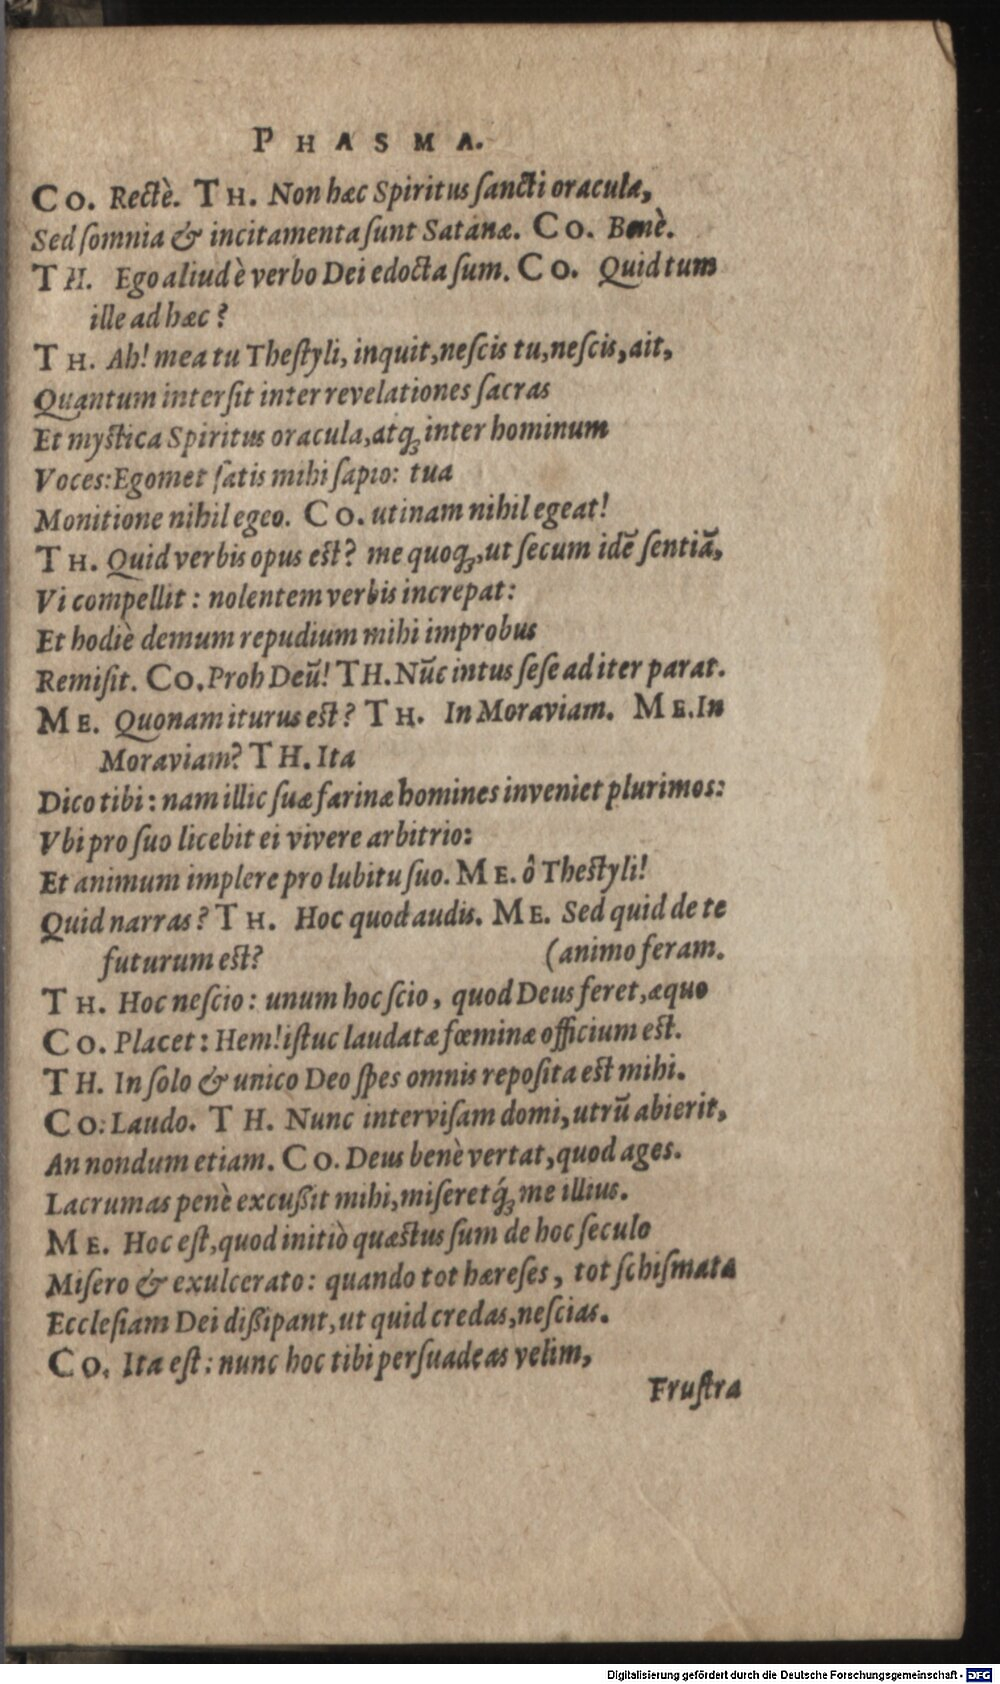 PHASMA.
Co. Rectè. TH. Non hæc Spiritus ſancti oracula,
Sed ſomnia & incitamenta ſunt Satanæ. Co. Benè.
TH. Ego aliud è verbo Dei edocta ſum. Co. Quid tum
ille ad hæc?
TH. Ah! mea tu Theſtyli, inquit, neſcis tu, neſcis, ait,
Quantum interſit inter revelationes ſacras
Et myſtica Spiritus oracula, atq́ꝫ inter hominum
Voces: Egomet ſatis mihi ſapio: tua
Monitione nihil egeo. Co. utinam nihil egeat!
TH. Quid verbis opus eſt? me quoqꝫ, ut ſecum idē ſentiā,
Vi compellit: nolentem verbis increpat:
Et hodiè demum repudium mihi improbus
Remiſit. Co. Proh Deū! TH. Nūc intus ſeſe ad iter parat.
ME. Quonam iturus eſt? TH. In Moraviam. ME. In
Moraviam? TH. Ita
Dico tibi: nam illic ſuæ farinæ homines inveniet plurimos:
Vbi pro ſuo licebit ei vivere arbitrio:
Et animum implere pro lubitu ſuo. ME. ô Theſtyli!
Quid narras? TH. Hoc quod audis. ME. Sed quid de te
futurum eſt? (animo feram.
TH. Hoc neſcio: unum hoc ſcio, quod Deus feret, æquo
Co. Placet: Hem! iſtuc laudatæ fœminæ officium eſt.
TH. In ſolo & unico Deo ſpes omnis repoſita eſt mihi.
Co: Laudo. TH. Nunc interviſam domi, utrū abierit,
An nondum etiam. Co. Deus benè vertat, quod ages.
Lacrumas penè excuſsit mihi, miſeretq́ꝫ me illius.
ME. Hoc eſt, quod initiò quæſtus ſum de hoc ſeculo
Miſero & exulcerato: quando tot hæreſes, tot ſchiſmata
Eccleſiam Dei diſsipant, ut quid credas, neſcias.
Co. Ita eſt: nunc hoc tibi perſuadeas velim,
Fruſtra
Digitalisierung gefördert durch die Deutsche Forschungsgemeinschaft - DFG